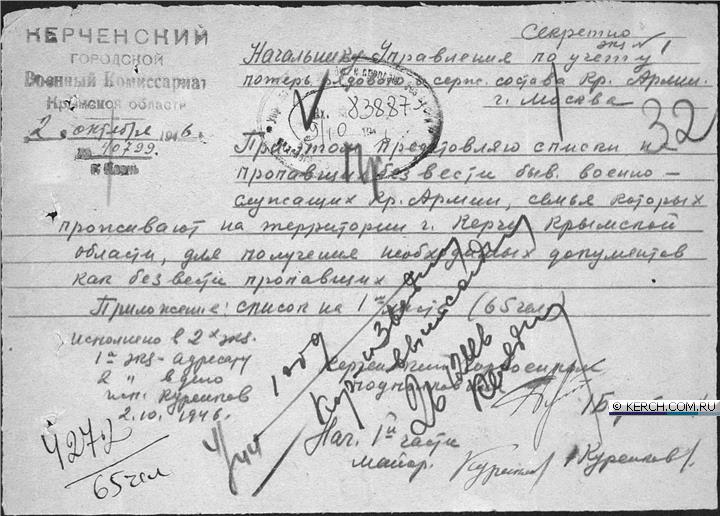 КЕРЧЕНСКИЙ
ГОРОДСКОЙ
Военный Комиссариат
Крымской области
2 октября 1946 г.
№ 10799
г. Керчь
Секретно
экз № 1
Начальнику Управления по учету
потерь рядового и серж. состава Кр. Армии.
г. Москва
83887
32
При этом представляю списки на
пропавших без вести быв. военно-
служащих Кр. Армии, семья которых
проживают на территории г. Керчи Крымской
области, для получения необходимых документов
как без вести пропавших
Приложение: список на 1 (65 чел)
исполнено в 2х экз.
1й экз - адресату
2 " в дело
исп. Куренков
2.10.1946.
Керченский горвоенком
подполковник
Нач. 1й части
майор. Куренков /Куренков/.
4272
65 чел
© KERCH.COM.RU